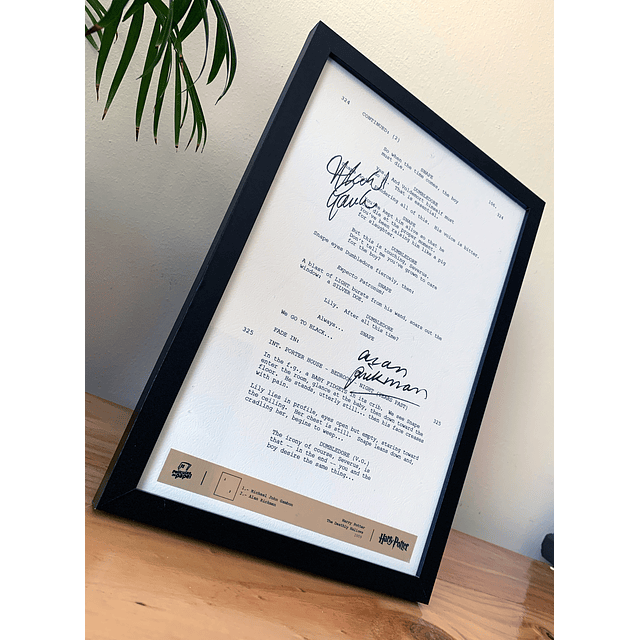 324
CONTINUED: (2)
SNAPE
So when the time comes, the boy
must die.
104. 324
DUMBLEDORE
And Voldemort himself must
That is essential.
His voice is bitter.
SNAPE
kept him alive so that he
die at the proper moment.
You've been raising him like a pig
for slaughter.
DUMBLEDORE
But this is touching, Severus.
Don't tell me you've grown to care
for the boy?
Snape eyes Dumbledore fiercely, then:
SNAPE
Expecto Patronum!
A blast of LIGHT bursts from his wand, soars out the
window: a SILVER DOE.
DUMBLEDORE
Lily. After all this time?
SNAPE
Always...
We GO TO BLACK...
325
FADE IN:
alan
rickman
INT. POTTER HOUSE - BEDROOM - NIGHT (YEARS PAST)
325
In the f.g., a BABY FIDGETS in its crib. We see Snape
enter the room, glance at the baby, then down toward the
floor. He stands, utterly still... then his face creases
with pain.
Lily lies in profile, eyes open but empty, staring toward
the ceiling. Her chest is still. Snape leans down and,
cradling her, begins to weep...
DUMBLEDORE (V.O.)
The irony of course, Severus, is
that -- in the end -- you and the
boy desire the same thing...
1.- Michael John Gambon
2.- Alan Rickman
Harry Potter
The Deathly Hallows
Harry Potter